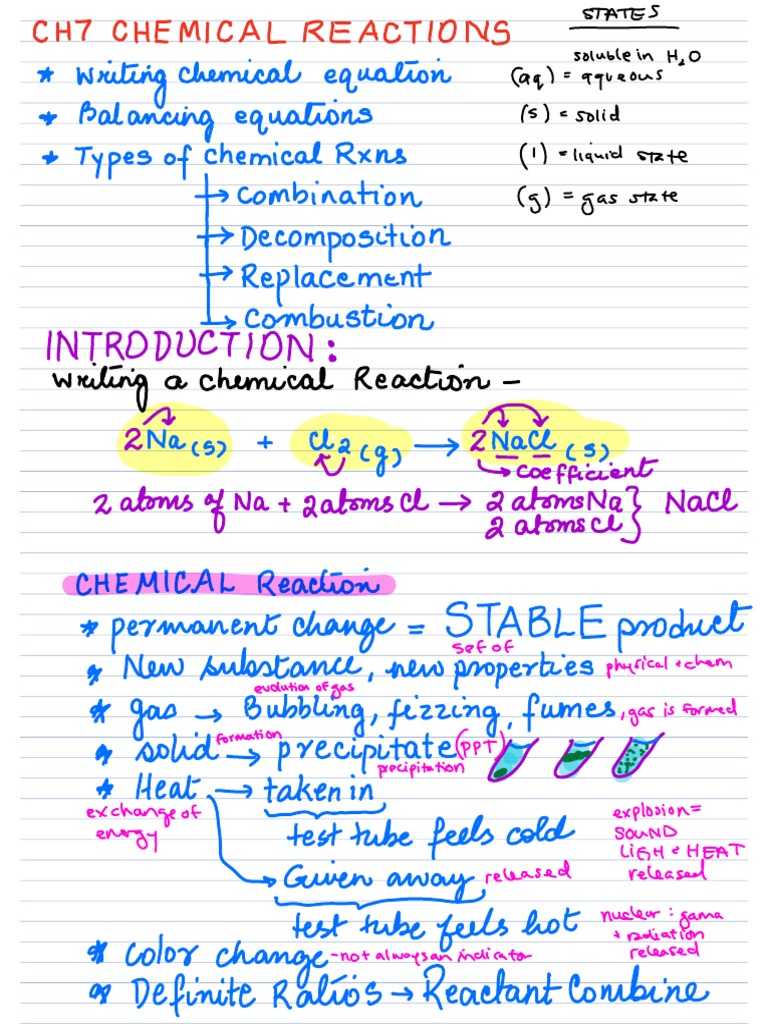 CH7 CHEMICAL REACTIONS
STATES
* Writing chemical equation
soluble in H2O
(aq) = aqueous
* Balancing equations
(s) = solid
* Types of chemical Rxns
(l) = liquid state
→ Combination
(g) = gas state
→ Decomposition
→ Replacement
→ Combustion
INTRODUCTION:
Writing a chemical Reaction -
2Na(s) + Cl2(g) → 2NaCl(s)
→ coefficient
2 atoms of Na + 2 atoms Cl → 2 atoms Na } NaCl
2 atoms Cl
CHEMICAL Reaction
* permanent change = STABLE product
set of
* New substance, new properties physical + chem
evolution of gas
* gas → Bubbling, fizzing, fumes, gas is formed
formation
* solid → precipitate (PPT)
precipitation
* Heat → taken in
exchange of
energy
test tube feels cold
explosion =
SOUND
LIGH + HEAT
released
→ Given away released
test tube feels hot
nuclear : gama
+ radiation
released
* Color change - not always an indicator
* Definite Ratios → Reactant Combine